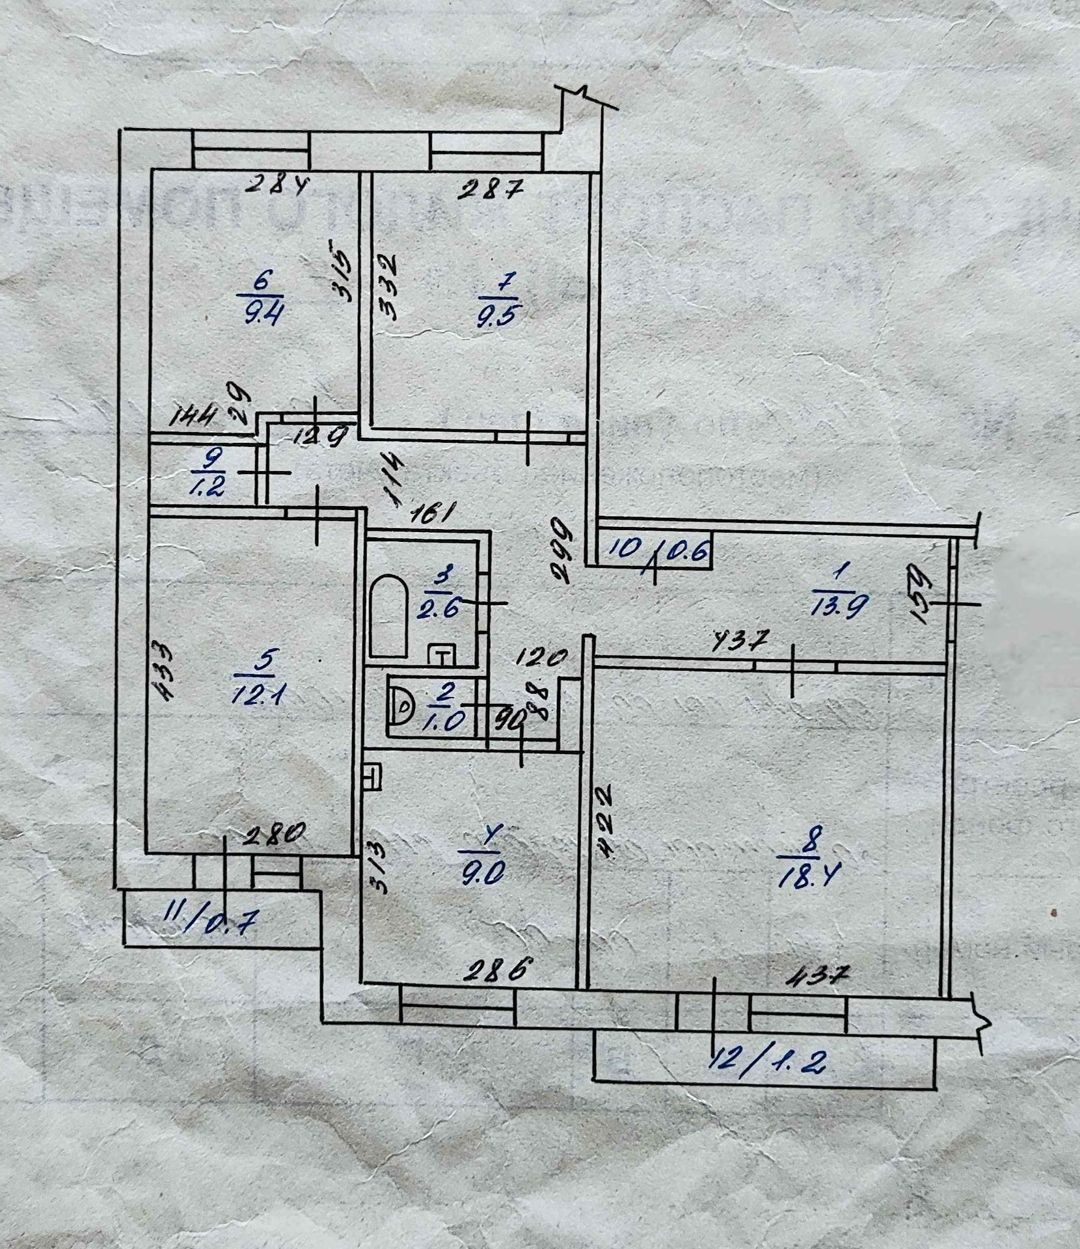 284
287
315
332
6
9.4
7
9.5
144
29
129
9
1.2
114
161
299
10/0.6
3
2.6
1
13.9
159
437
120
433
5
12.1
2
1.0
90
88
280
313
4
9.0
422
8
18.4
11/0.7
286
437
12/1.2